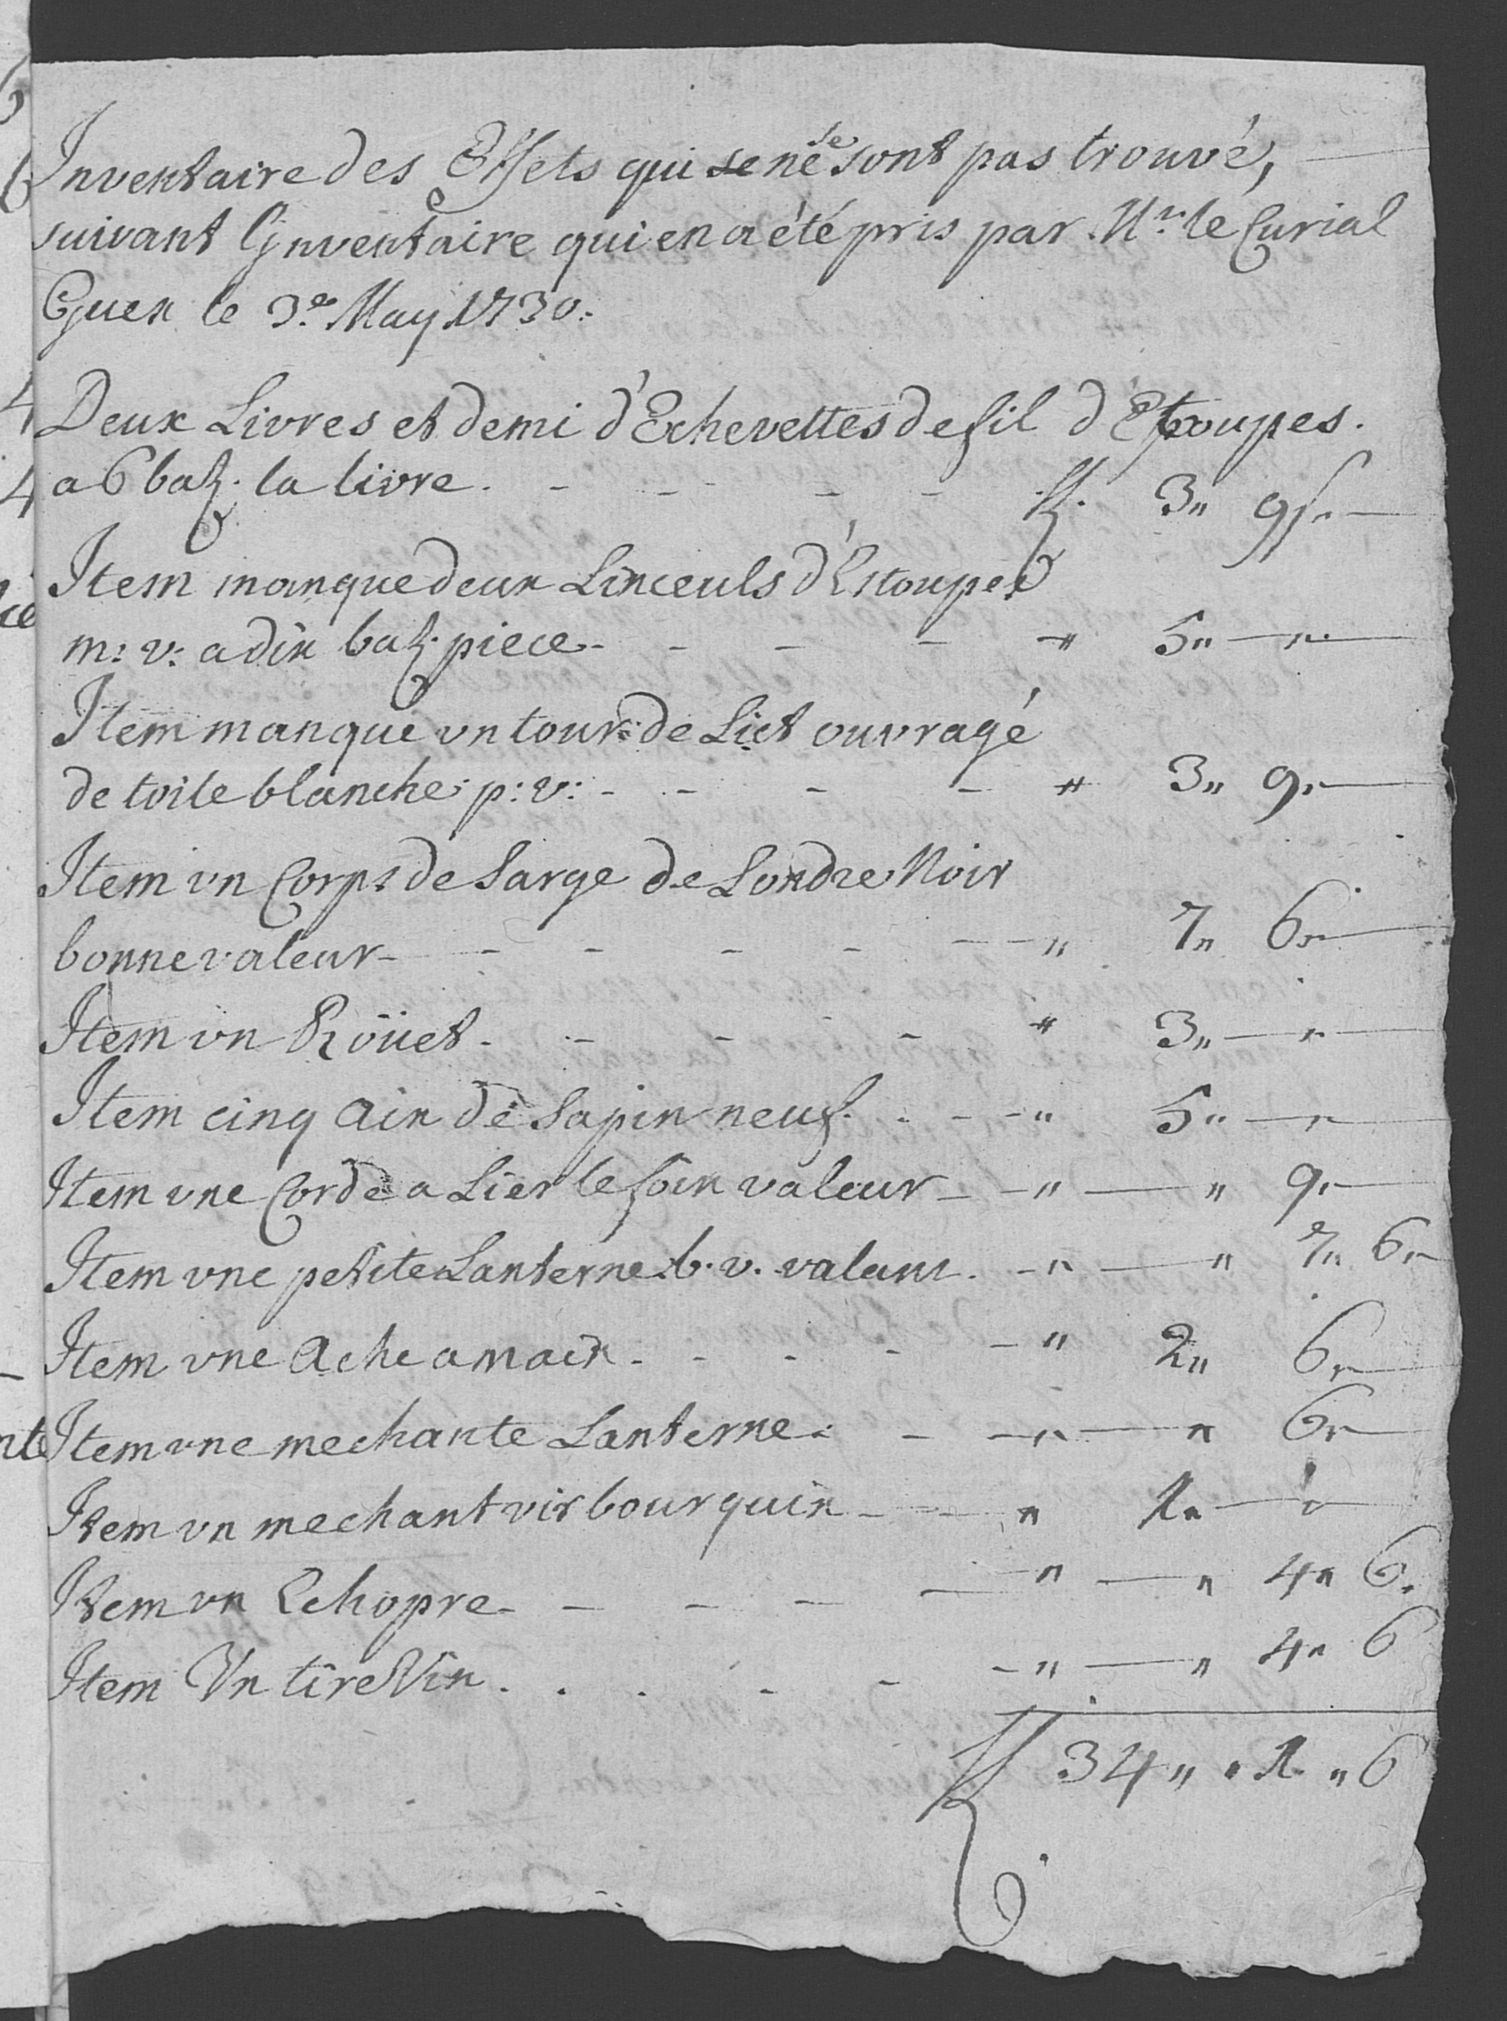 Inventaire des Effets qui se ne se sont pas trouvé,
suivant l'Inventaire qui en a été pris par Mr. le Curial
Guex le 3.e May 1730.
Deux Livres et demi d'Echevettes de fil d'Etoupes.
a 6 batz. la livre. - - - - - 3„ 9 s„
Item manque deux Linceuls d'Etoupes
m: v: a dix batz. piece - - - - „ 5„ — „
Item manque vn tour de Lict ouvragé
de toile blanche p: v: - - - - „ 3„ 9„
Item vn Corps de Sarge de Londre Noir
bonne valeur - - - - - - „ 7„ 6„
Item vn Roüet - - - - „ 3„ — „
Item cinq aix de Sapin neuf. - - „ 5„ — „
Item vne Corde a Lier le foin valeur - - „ — „ 9„
Item vne petite Lanterne b. v. valant. - „ — „ 7„ 6„
Item vne Ache a main - - - - „ 2„ 6„
Item vne mechante Lanterne. - - „ — „ 6„
Item vn mechant virbourquin - - „ 1„ — „
Item vn Echopre - - - - — „ — „ 4„ 6„
Item Vn tire Vin . . . - - - „ — „ 4„ 6
34„ „ 1 „ 6